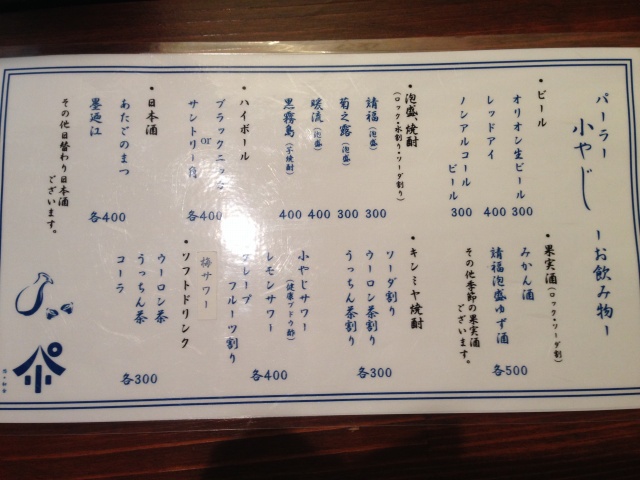 パーラー 小やじ ーお飲み物ー
・ビール
オリオン生ビール 300
レッドアイ 400
ノンアルコールビール 300
・泡盛、焼酎
(ロック・水割り・ソーダ割り)
請福(泡盛) 300
菊之露(泡盛) 300
暖流(泡盛) 400
黒霧島(芋焼酎) 400
・ハイボール
ブラックニッカ
or
サントリー角 各400
・日本酒
あたごのまつ
墨廼江 各400
その他日替わり日本酒
ございます。
・果実酒(ロック・ソーダ割)
みかん酒
請福泡盛ゆず酒 各500
その他季節の果実酒
ございます。
・キンミヤ焼酎
ソーダ割り
ウーロン茶割り
うっちん茶割り 各300
小やじサワー
(健康ブドウ酢)
レモンサワー
グレープ
フルーツ割り 各400
梅サワー
・ソフトドリンク
ウーロン茶
うっちん茶
コーラ 各300